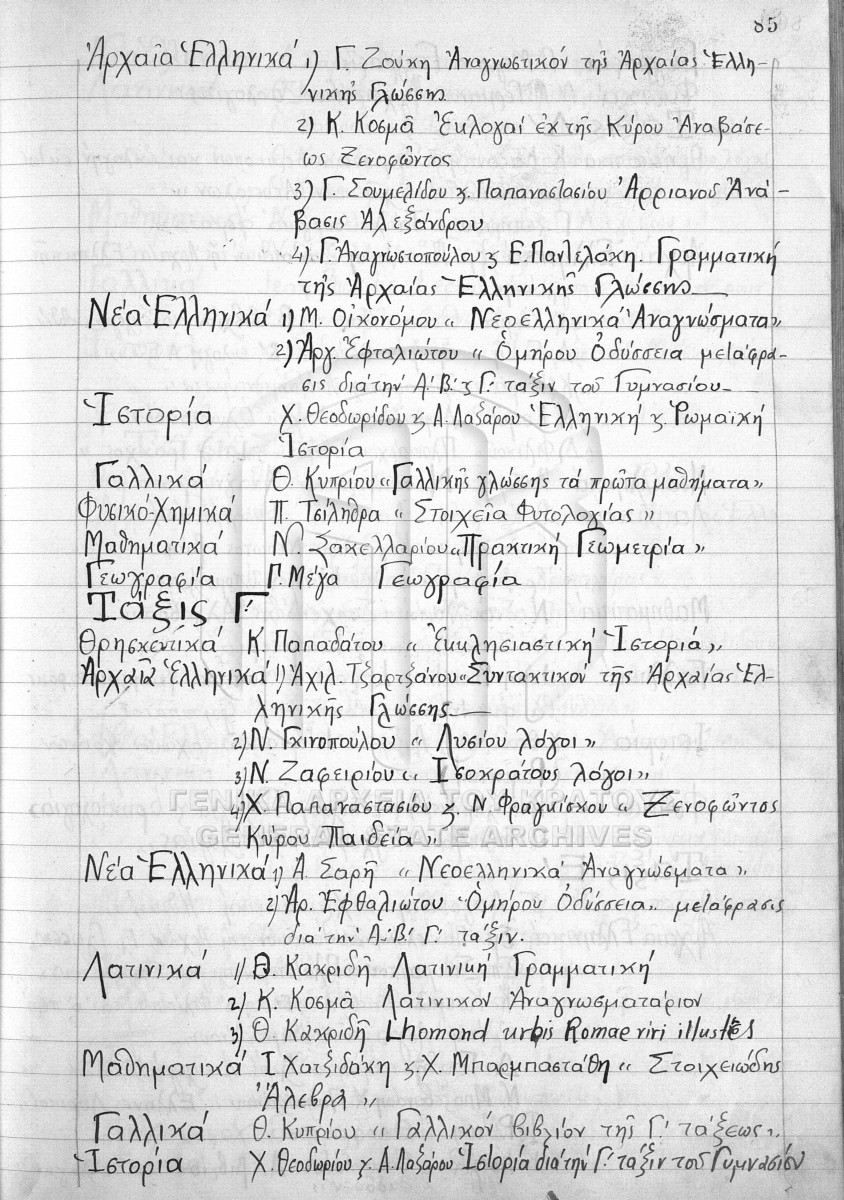 85
Ἀρχαῖα Ἑλληνικά 1) Γ. Ζούκη Ἀναγνωστικόν τῆς Ἀρχαίας Ἑλλη-
νικῆς Γλώσσης
2) Κ. Κοσμᾶ Ἐκλογαί ἐκ τῆς Κύρου Ἀναβάσε-
ως Ξενοφῶντος
3) Γ. Σουμελίδου ϗ. Παπαναστασίου Ἀρριανοῦ Ἀνά-
βασις Ἀλεξάνδρου
4) Γ. Ἀναγνωστοπούλου ϗ Ε. Παντελάκη. Γραμματική
τῆς Ἀρχαίας Ἑλληνικῆς Γλώσσης
Νέα Ἑλληνικά 1) Μ. Οἰκονόμου « Νεοελληνικά Ἀναγνώσματα»
2) Ἀργ. Ἐφταλιώτου « Ὁμήρου Ὀδύσσεια μετάφρα-
σις διά τήν Α΄. Β΄. ϗ Γ΄. τάξιν τοῦ Γυμνασίου
Ἱστορία Χ. Θεοδωρίδου ϗ Α. Λαζάρου Ἑλληνική ϗ. Ῥωμαϊκή
Ἱστορία
Γαλλικά Θ. Κυπρίου « Γαλλικῆς γλώσσης τά πρῶτα μαθήματα»
Φυσικό-Χημικά Π. Τσίληθρα « Στοιχεῖα Φυτολογίας »
Μαθηματικά Ν. Σακελλαρίου «Πρακτική Γεωμετρία »
Γεωγραφία Γ. Μέγα Γεωγραφία
Τάξις Γ΄
Θρησκευτικά Κ. Παπαδάτου « Ἐκκλησιαστική Ἱστορία »
Ἀρχαῖα Ἑλληνικά 1) Ἀχιλ. Τζαρτζάνου «Συντακτικόν τῆς Ἀρχαίας Ἑλ-
ληνικῆς Γλώσσης
2) Ν. Γκινοπούλου « Λυσίου λόγοι »
3) Ν. Ζαφειρίου « Ἰσοκράτους λόγοι »
ΓΕΝΙΚΑ ΑΡΧΕΙΑ ΤΟΥ ΚΡΑΤΟΥΣ
4) Χ. Παπαναστασίου ϗ. Ν. Φραγκίσκου « Ξενοφῶντος
GENERAL STATE ARCHIVES
Κύρου Παιδεία »
Νέα Ἑλληνικά 1) Α. Σαρῆ « Νεοελληνικά Ἀναγνώσματα »
2) Ἀρ. Ἐφθαλιώτου «Ὁμήρου Ὀδύσσεια» μετάφρασις
διά τήν Α΄. Β΄ Γ΄ τάξιν.
Λατινικά 1) Θ. Κακριδῆ Λατινική Γραμματική
2) Κ. Κοσμᾶ Λατινικόν Ἀναγνωσματάριον
3) Θ. Κακριδῆ Lhomond urbis Romae viri illustres
Μαθηματικά Ι Χατζιδάκη ϗ. Χ. Μπαρμπαστάθη « Στοιχειώδης
Ἄλγεβρα »
Γαλλικά Θ. Κυπρίου « Γαλλικόν βιβλίον τῆς Γ΄ τάξεως ».
Ἱστορία Χ. Θεοδωρίου ϗ. Α. Λαζάρου Ἱστορία διά τήν Γ΄. τάξιν τοῦ Γυμνασίου